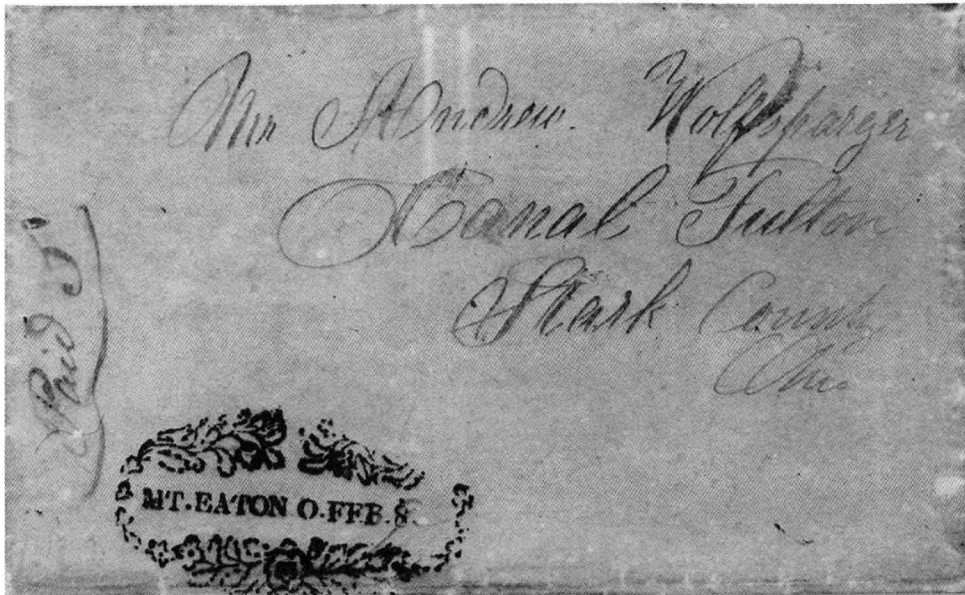 Mr Andrew. Wolfsparger
Canal Fulton
Stark County
Ohio
Paid 3
MT. EATON O. FEB. 8.